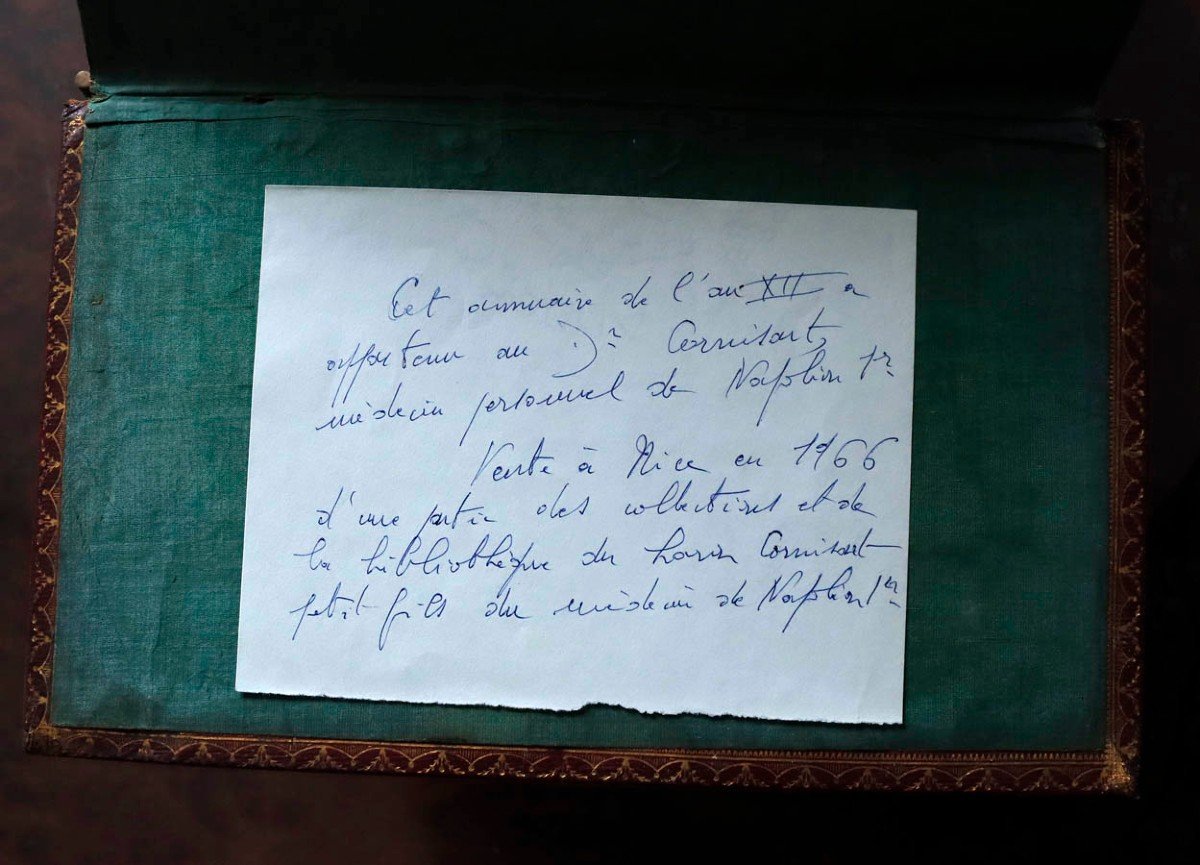 Cet annuaire de l'an XII a
appartenu au Dr Corvisart,
médecin personnel de Napoléon 1er
Vente à Nice en 1966
d'une partie des collections et de
la bibliothèque du baron Corvisart
petit-fils du médecin de Napoléon 1er